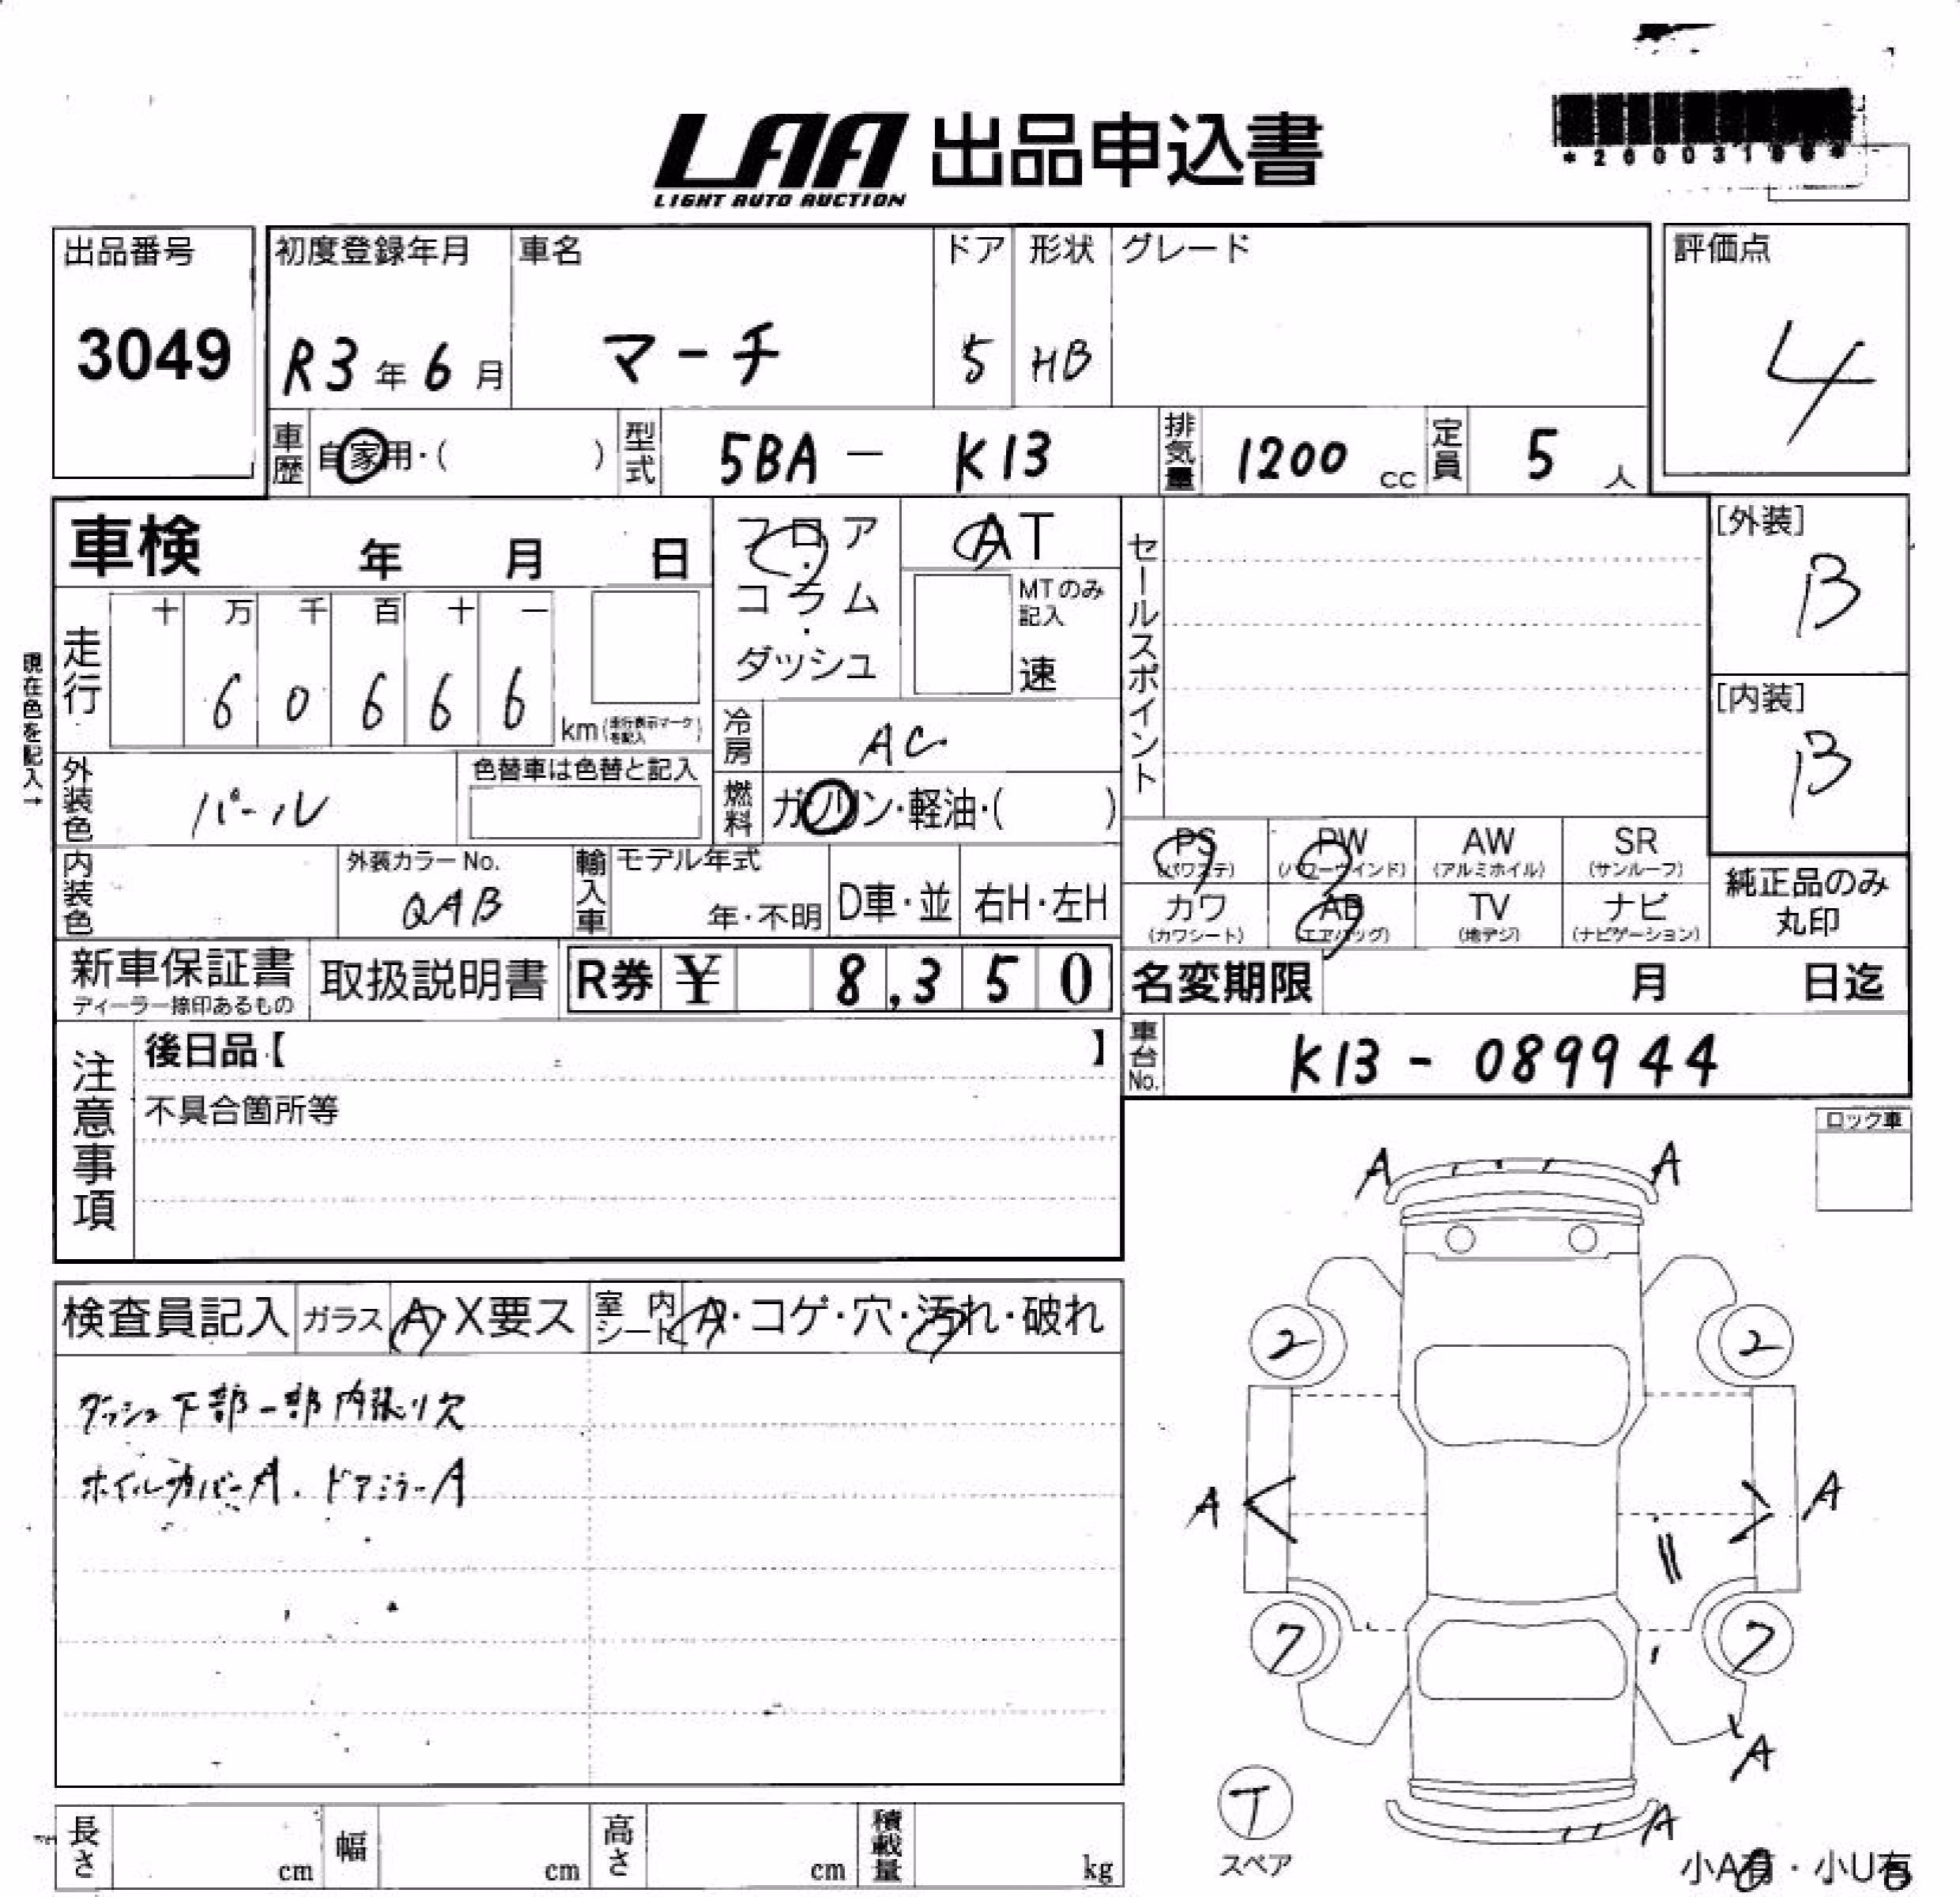 LAA 出品申込書
LIGHT AUTO AUCTION
出品番号
3049
初度登録年月
R3年6月
車名
マーチ
ドア
5
形状
HB
グレード
評価点
4
車歴 自家用・( )
型式 5BA - K13
排気量 1200 cc
定員 5 人
車検 年 月 日
フロア・コラム・ダッシュ
AT
MTのみ記入
速
セールスポイント
[外装]
B
[内装]
B
現在色を記入→
走行
十 万 千 百 十 一
6 0 6 6 6
km (走行表示マークを記入)
冷房 AC
外装色 パール
色替車は色替と記入
燃料 ガソリン・軽油・( )
内装色
外装カラーNo.
QAB
輸入車
モデル年式
年・不明
D車・並
右H・左H
PS (パワステ)
PW (パワーウインド)
AW (アルミホイル)
SR (サンルーフ)
カワ (カワシート)
AB (エアバッグ)
TV (地デジ)
ナビ (ナビゲーション)
純正品のみ丸印
新車保証書
ディーラー捺印あるもの
取扱説明書
R券 ¥ 8,350
名変期限 月 日迄
車台No. K13 - 089944
注意事項
後日品【 】
不具合箇所等
ロック車
検査員記入
ガラス A・X要ス
室内シート A・コゲ・穴・汚れ・破れ
ダッシュ下部一部内張り欠
ホイルカバーA. ドアミラーA
A A
2 2
A A
7 7
A
T
スペア
A
小A有・小U有
長さ cm
幅 cm
高さ cm
積載量 kg